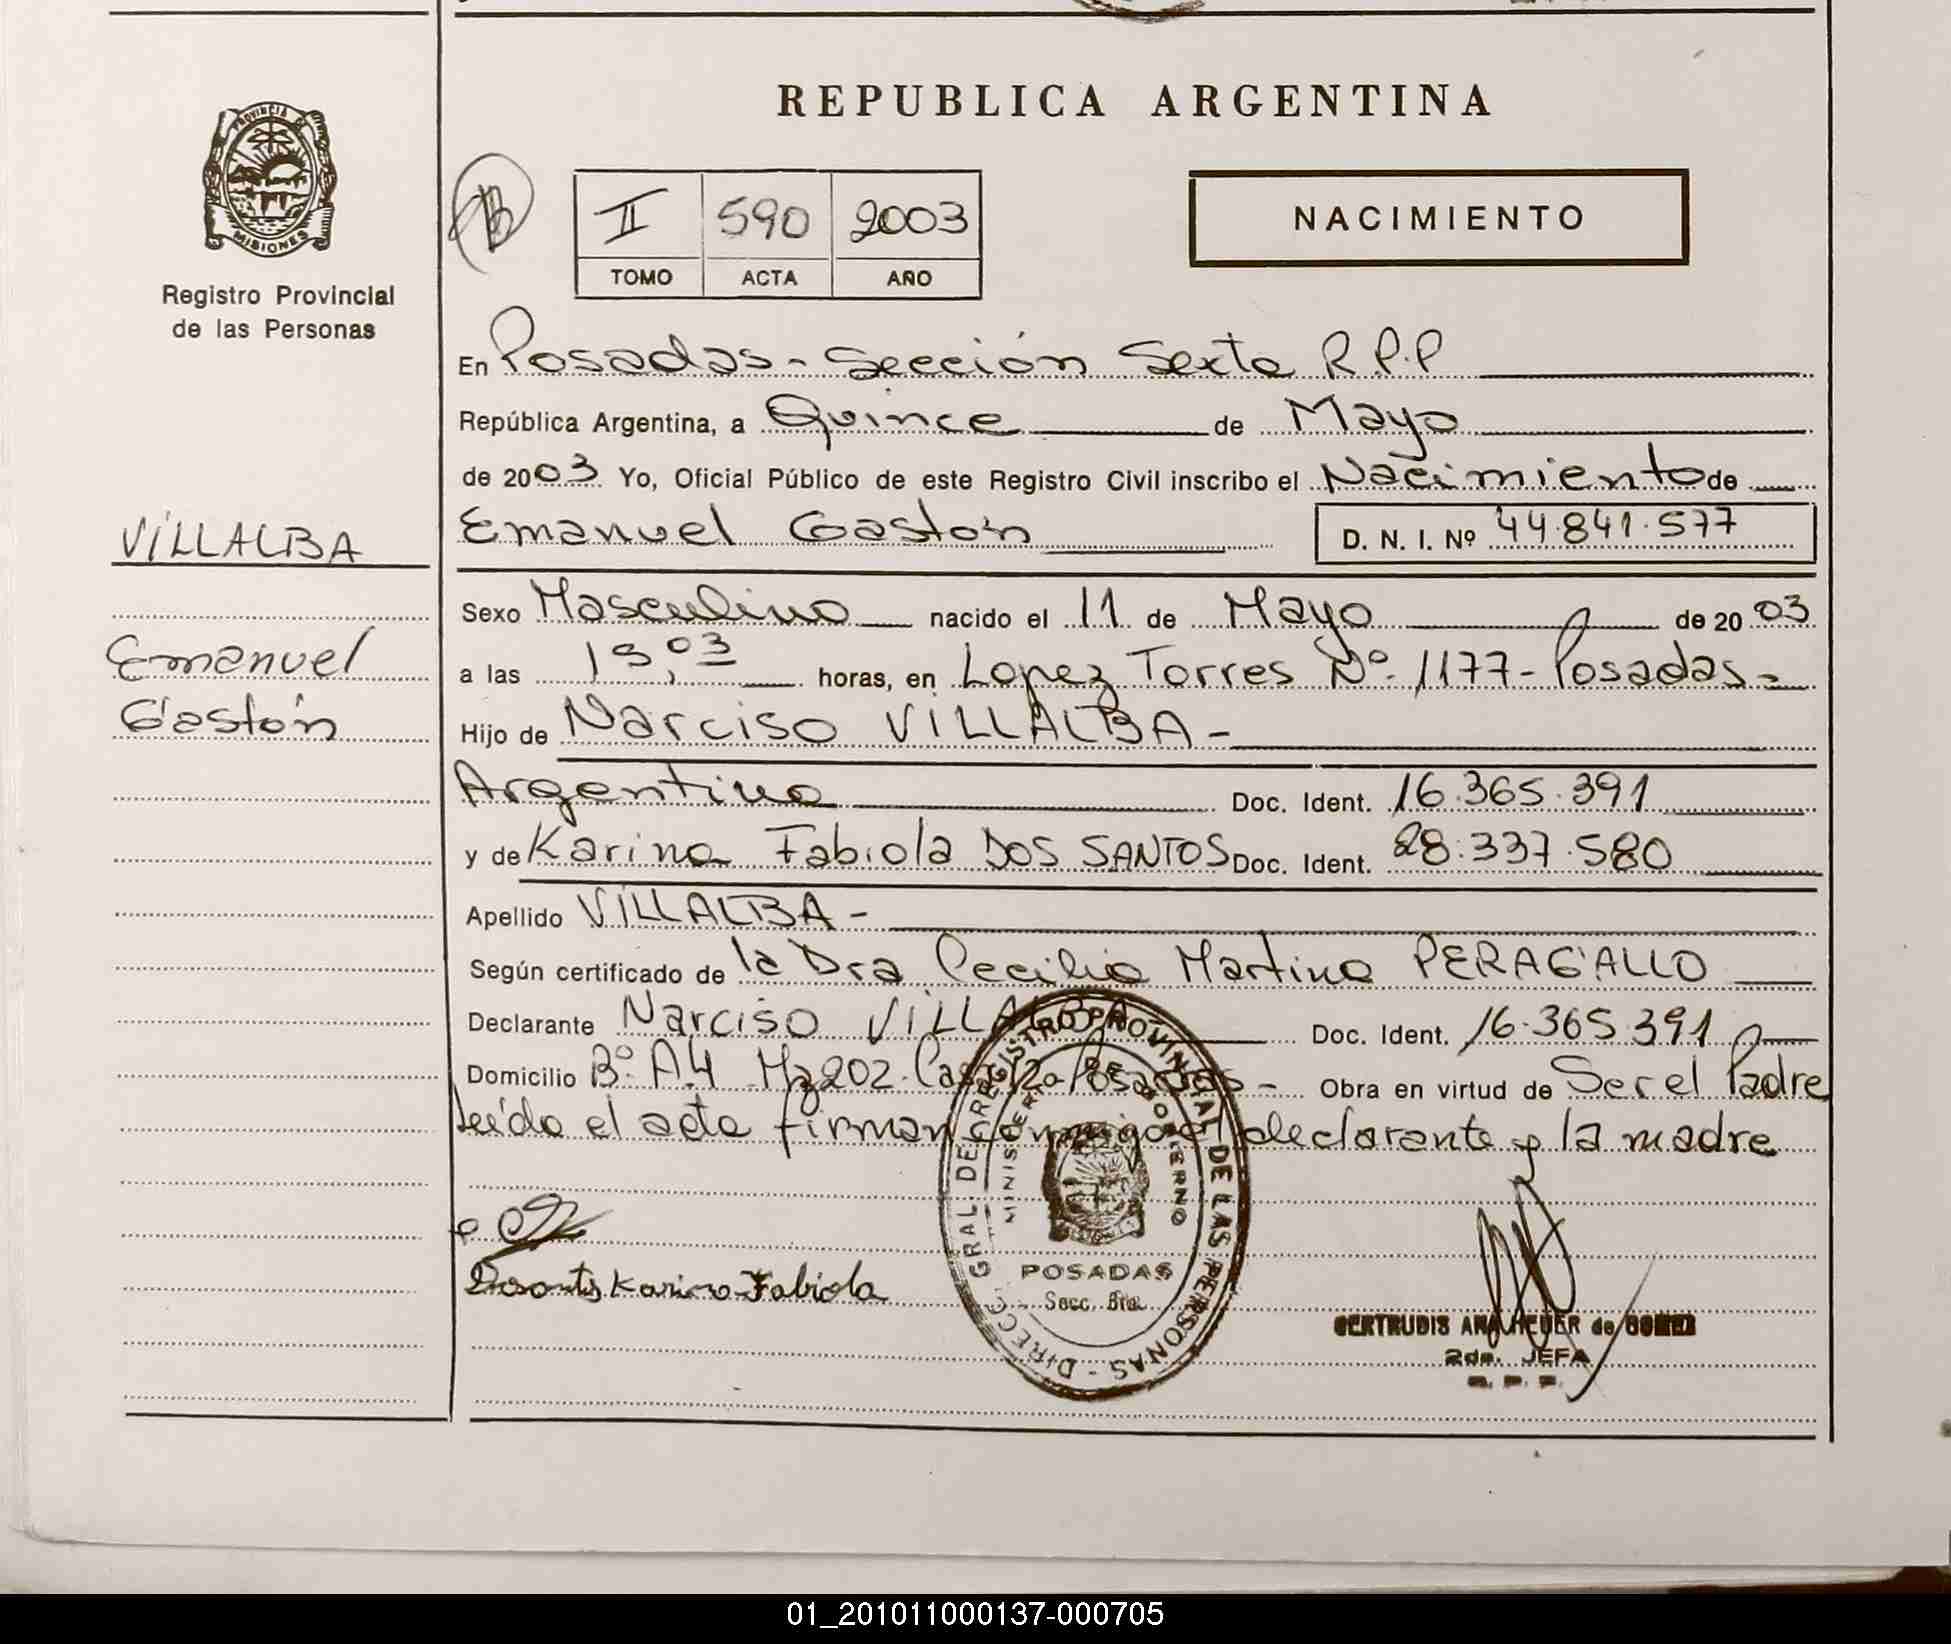 REPUBLICA ARGENTINA
PROVINCIA DE
MISIONES
Registro Provincial
de las Personas
II 590 2003
TOMO ACTA AÑO
NACIMIENTO
En Posadas - Sección Sexta R.P.P
República Argentina, a Quince de Mayo
de 2003 Yo, Oficial Público de este Registro Civil inscribo el Nacimiento de
VILLALBA
Emanuel Gastón D. N. I. Nº 44.841.577
Sexo Masculino nacido el 11 de Mayo de 2003
Emanuel
a las horas, en Lopez Torres Nº 1177 - Posadas -
Gastón
Hijo de Narciso VILLALBA -
Argentino Doc. Ident. 16.365.391
y de Karina Fabiola DOS SANTOS Doc. Ident. 28.337.580
Apellido VILLALBA -
Según certificado de la Dra Cecilia Martina PERAGALLO
Declarante Narciso VILLALBA Doc. Ident. 16.365.391
Domicilio Bº A.4 Mz 202 Casa 12 - Posadas - Obra en virtud de Ser el Padre
leído el acta firman conmigo el declarante y la madre
DIRECC. GRAL. DE REGISTRO PROVINCIAL DE LAS PERSONAS
MINISTERIO DE GOBIERNO
POSADAS
Secc. 6ta.
Karina Fabiola
GERTRUDIS ANA HEUER de GOMEZ
2da. JEFA
R. P. P.
01_201011000137-000705